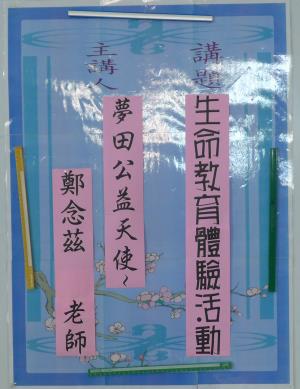 講題
生命教育體驗活動
主講人
夢田公益天使~
鄭念茲 老師